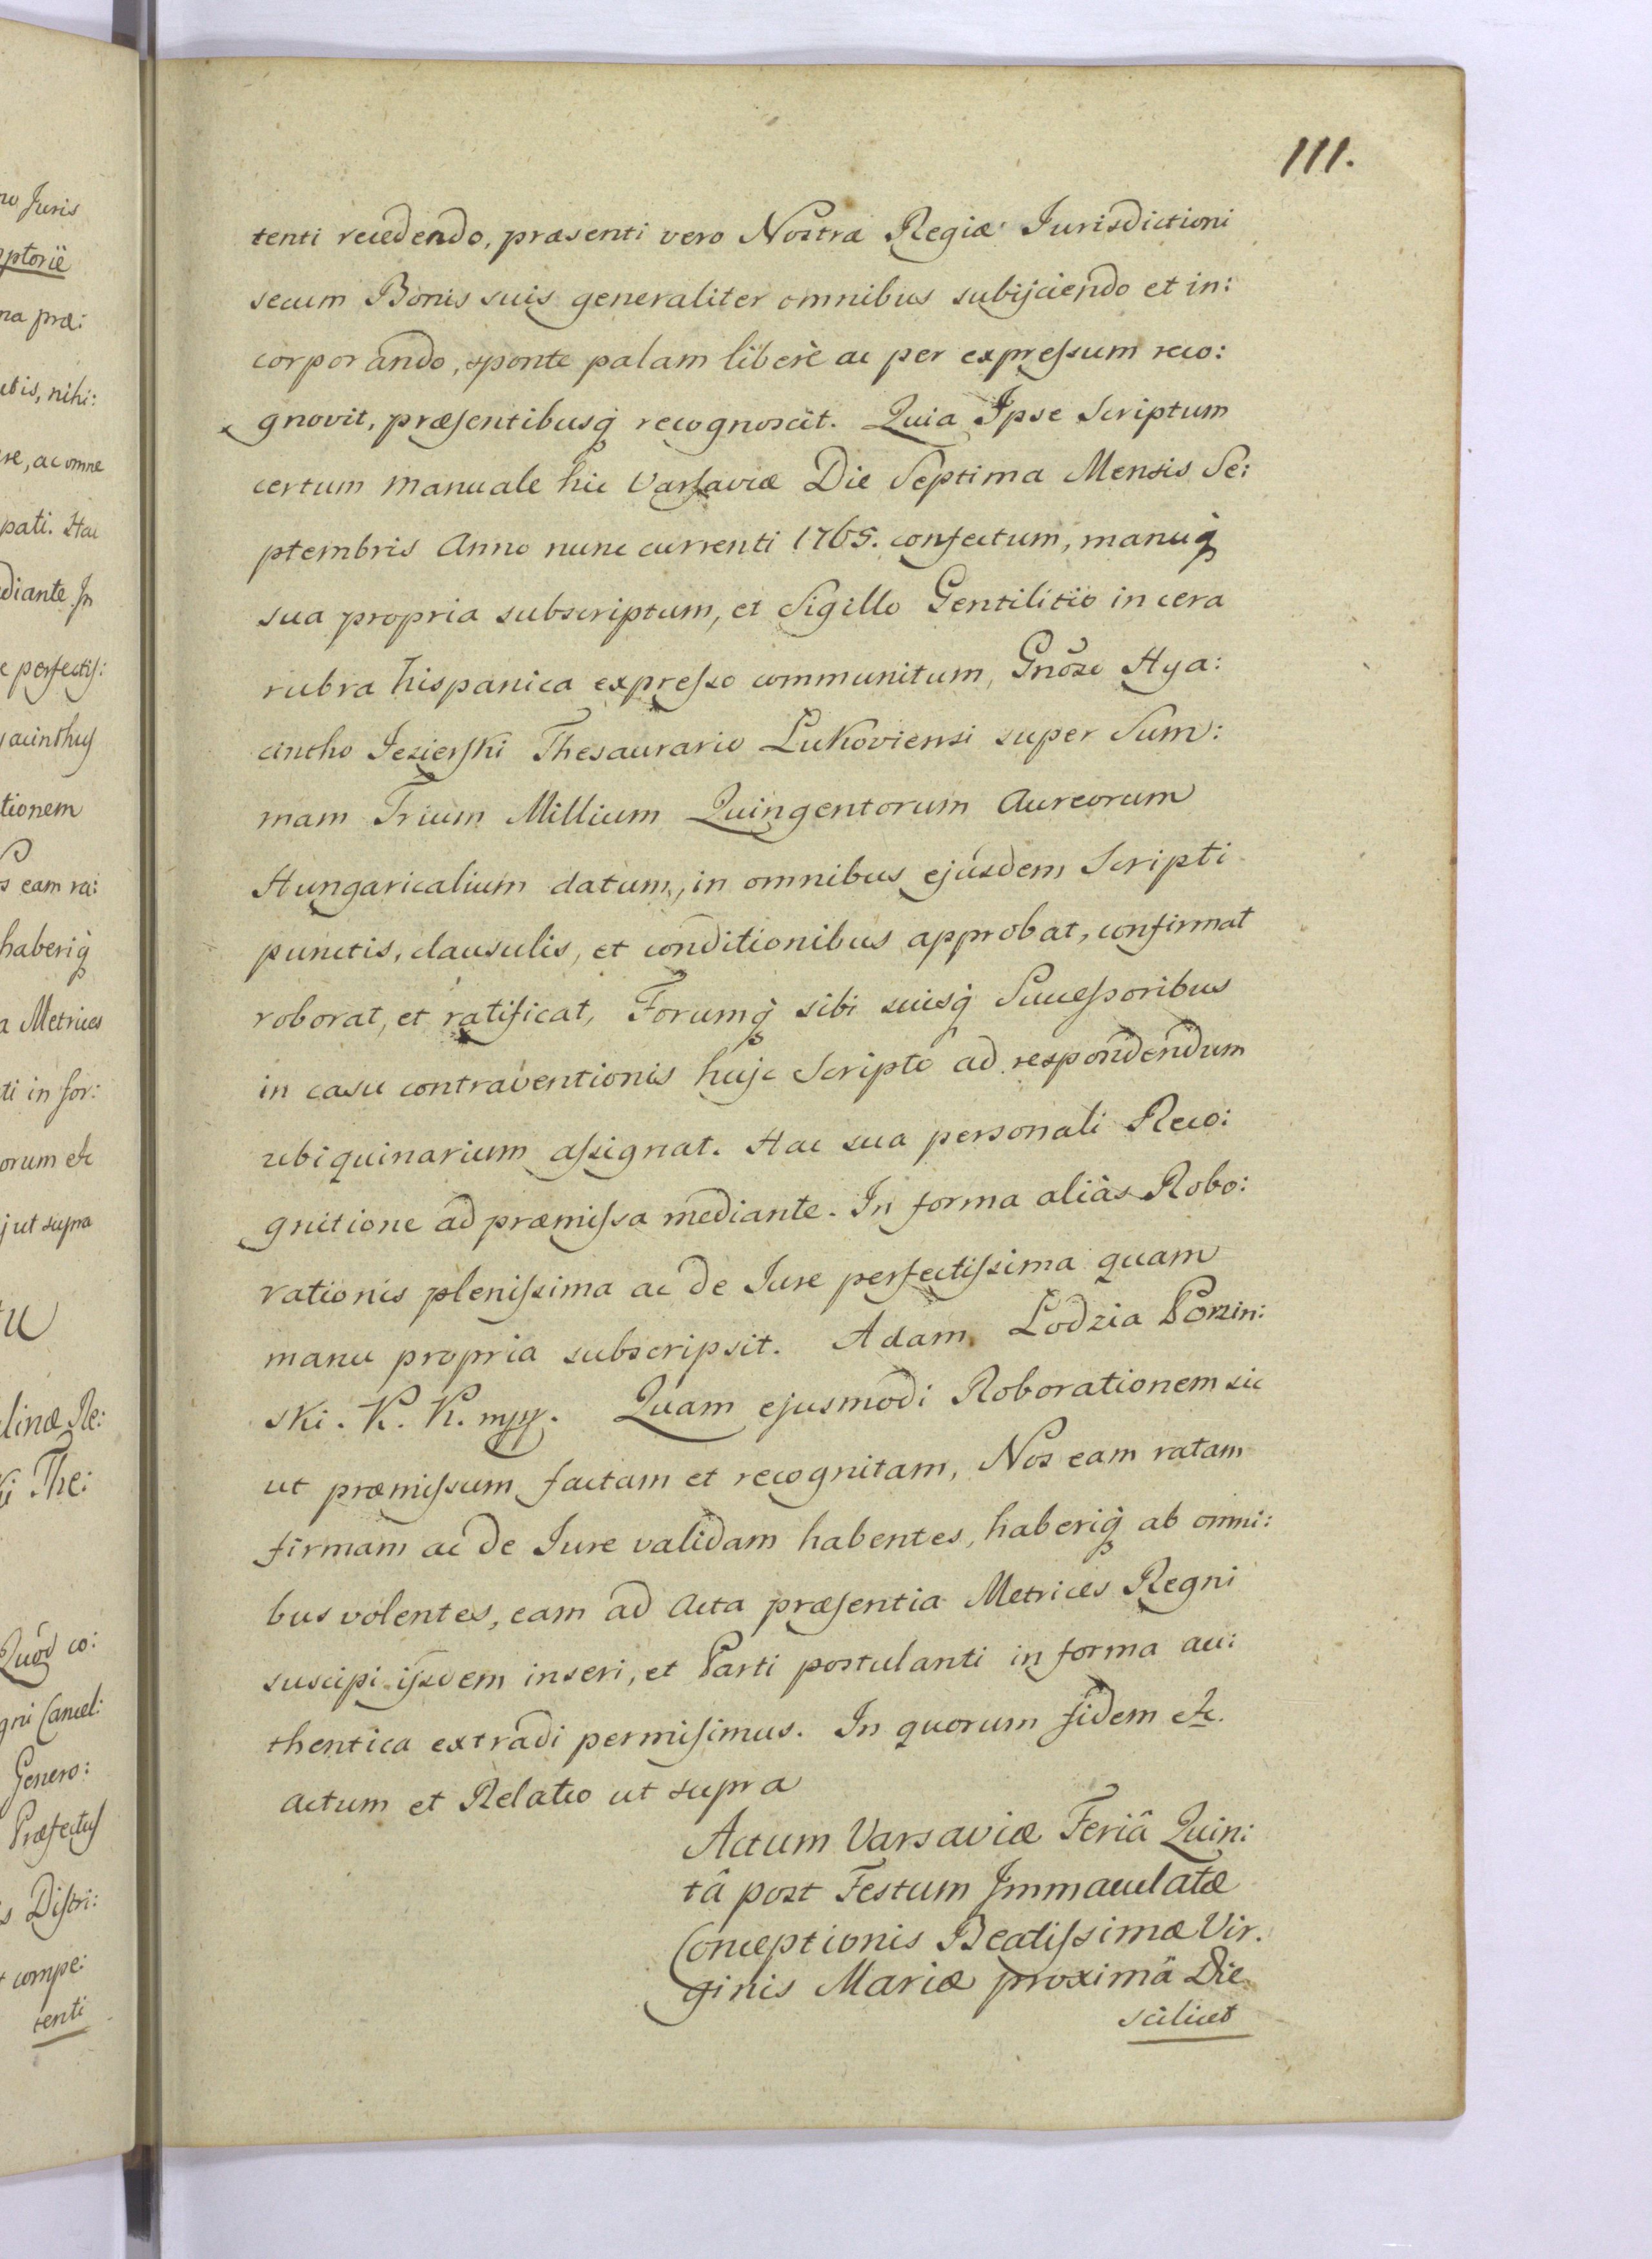 111.
tenti recedendo, præsenti vero Nostræ Regiæ Jurisdictioni
secum Bonis suis generaliter omnibus subijciendo et in:
corporando, sponte palam liberè ac per expressum reco:
gnovit, præsentibusq recognoscit. Quia Ipse Scriptum
certum manuale hic Varsaviæ Die Septima Mensis Se:
ptembris Anno nunc currenti 1765. confectum, manuq
sua propria subscriptum, et Sigillo Gentilitio in cera
rubra hispanica expresso communitum, Gnõso Hya:
cintho Jezierski Thesaurario Lukoviensi super Sum:
mam Trium Millium Quingentorum Aureorum
Hungaricalium datum, in omnibus ejusdem Scripti
punctis, clausulis, et conditionibus approbat, confirmat
roborat, et ratificat, Forumq sibi suisq Successoribus
in casu contraventionis hujc Scripto ad respondendum
ubiquinarium assignat. Hac sua personali Reco:
gnitione ad præmissa mediante. In forma aliàs Robo:
rationis plenissima ac de Jure perfectissima quam
manu propria subscripsit. Adam Lodzia Ponin:
ski. K. K. mpp. Quam ejusmodi Roborationem sic
ut præmissum factam et recognitam, Nos eam ratam
firmam ac de Jure validam habentes, haberiq ab omni:
bus volentes, eam ad Acta præsentia Metrices Regni
suscipi ijsdem inseri, et Parti postulanti in forma au:
thentica extradi permisimus. In quorum fidem etc.
Actum et Relatio ut supra
Actum Varsaviæ Feriâ Quin:
tâ post Festum Immaculatæ
Conceptionis Beatissimæ Vir.
ginis Mariæ proximâ Die
scilicet
no Juris
ptorië
na præ:
utis, nihi:
re, ac omne
pati. Hac
diante In
c perfectis:
yacinthus
tionem
s eam ra:
haberiq
a Metrices
ti in for:
orum etc
j ut supra
linæ Re:
The:
Quod co:
gni Cancel:
Genero:
Præfectus
s Distri:
t compe:
tenti